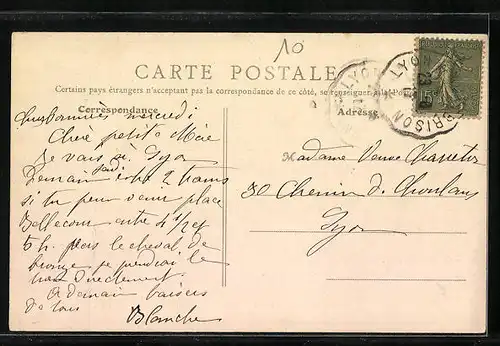 10
CARTE POSTALE
Certains pays étrangers n'acceptent pas la correspondance de ce côté, se renseigner à la Poste
Correspondance
Adresse
REPUBLIQUE FRANÇAISE
15c
LYON
LYON
mercredi
Chère petite Mère
Je vais à Lyon
Demain 2 trams
si tu peux venir place
Bellecour entre 4 1/2 et
5 h. près le cheval de
bronze je prendrai le
tram directement.
A demain baisers
de tous
Blanche
Madame Veuve
30 Chemin de Choulans
Lyon